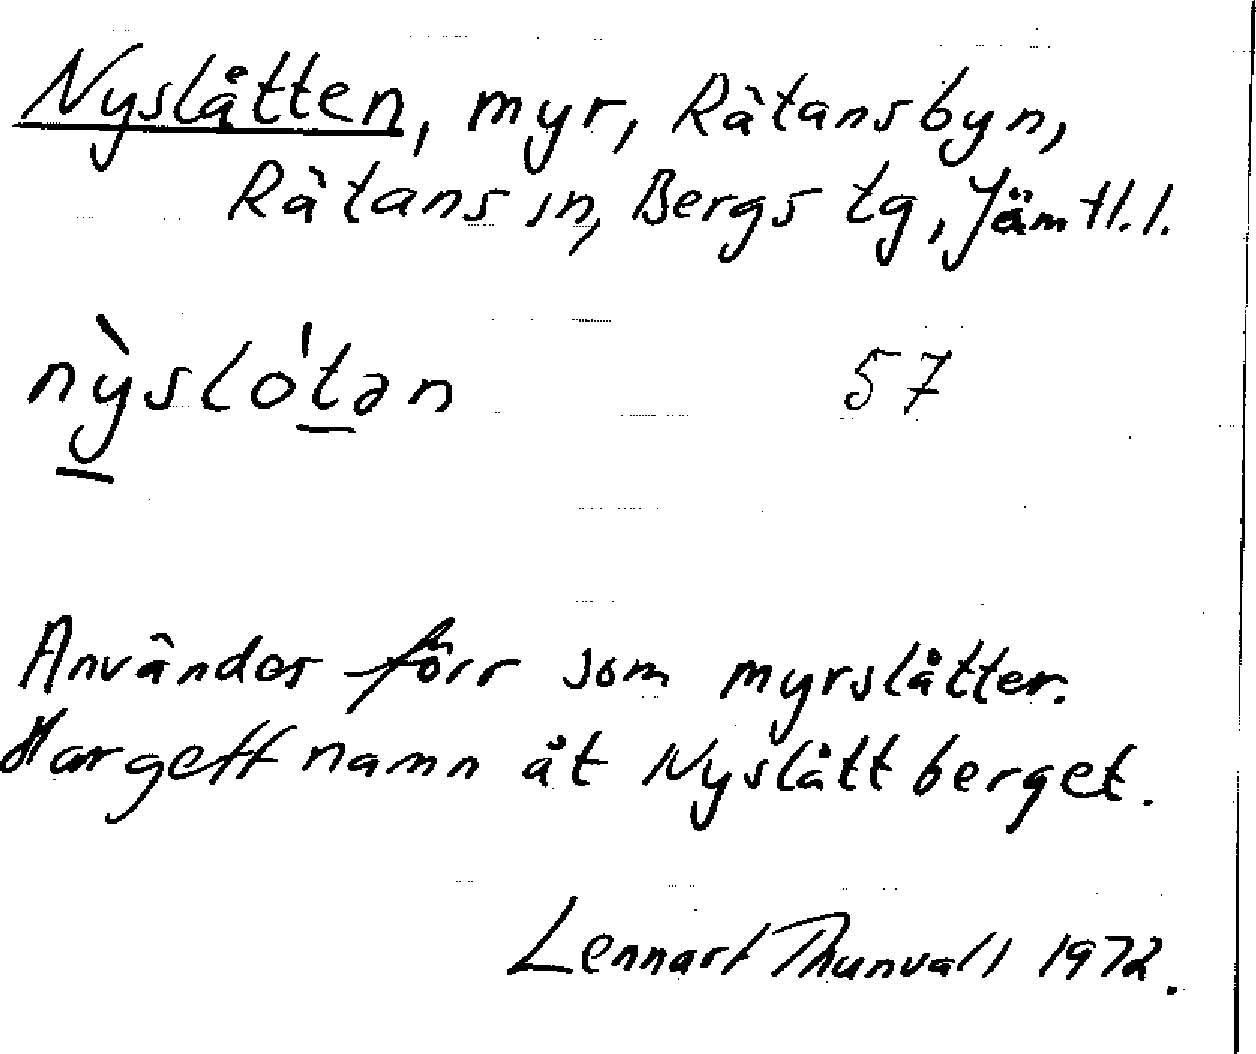 Nyslåtten, myr, Rätansbyn,
Rätans sn, Bergs tg, Jämtl.l.
nỳslo̍tən 57
Användes förr som myrslåtter.
Har gett namn åt Nyslåttberget.
Lennart Thunvall 1972.